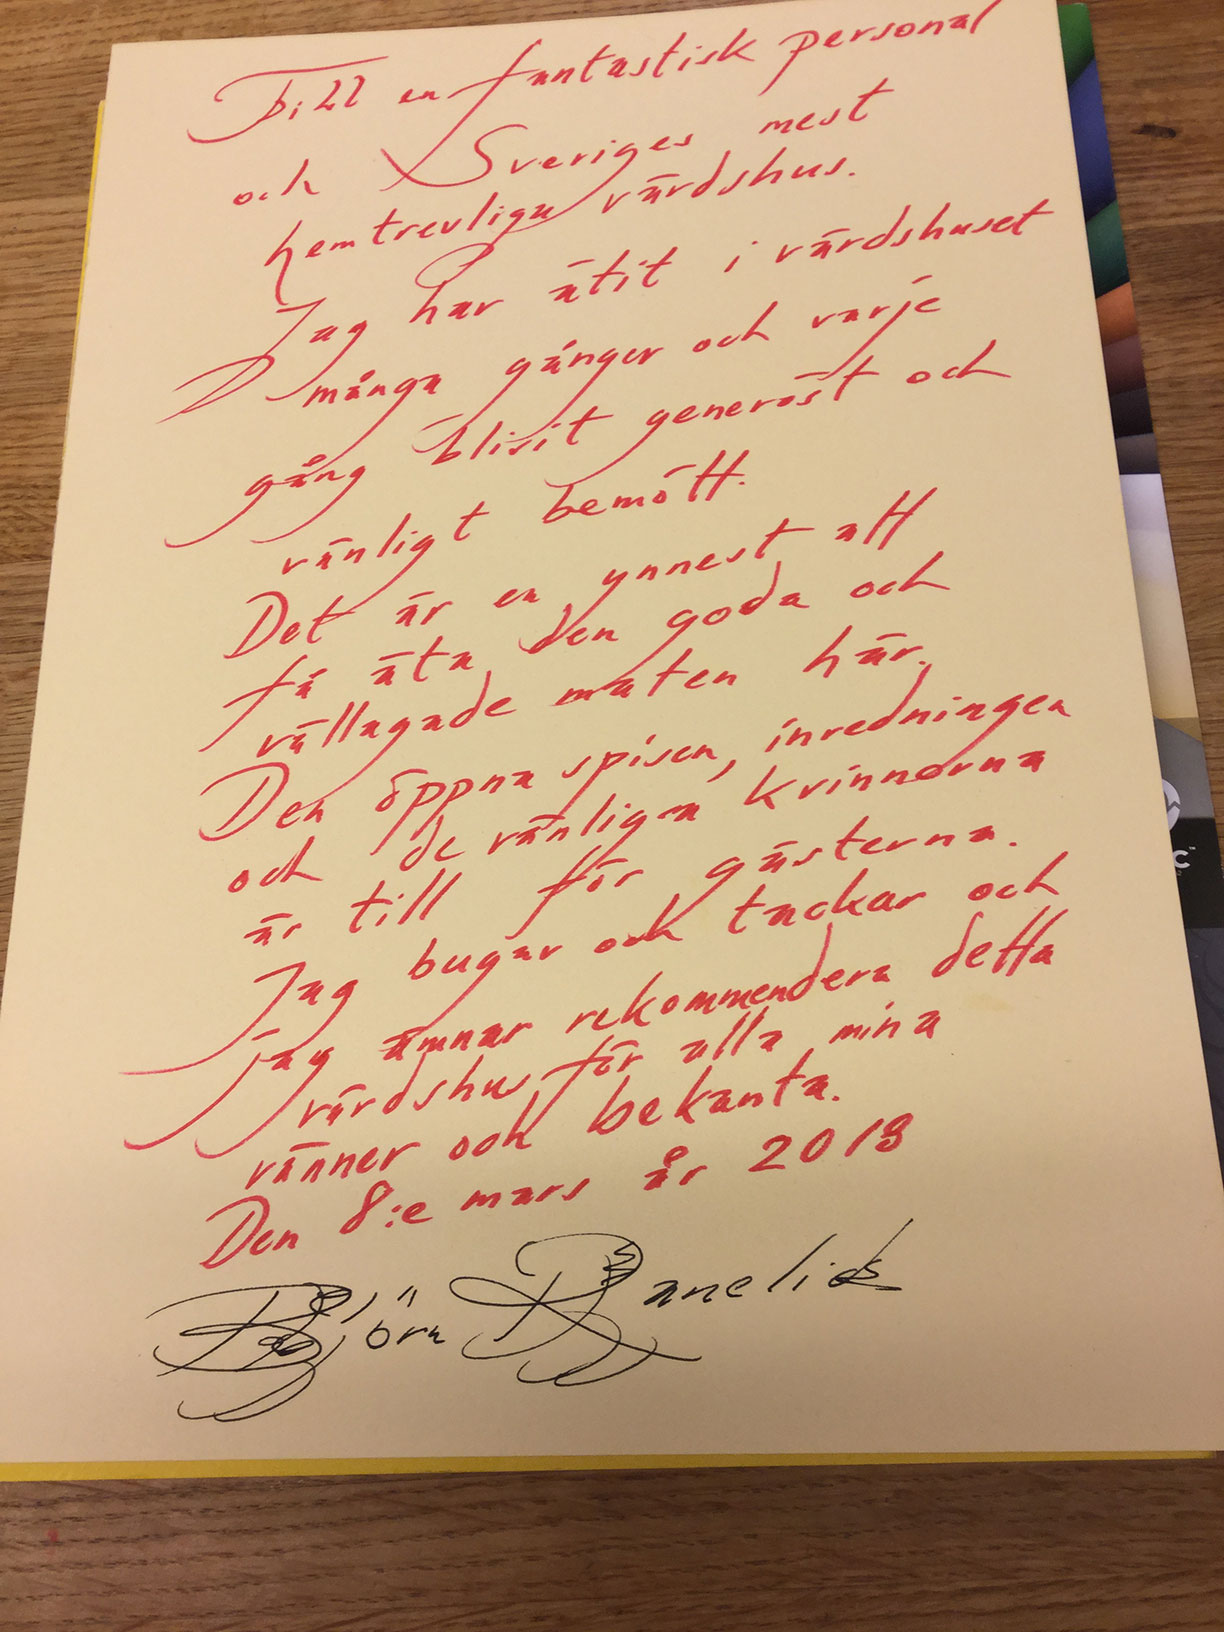 Till en fantastisk personal
och Sveriges mest
hemtrevliga värdshus.
Jag har ätit i värdshuset
många gånger och varje
gång blivit generöst och
vänligt bemött.
Det är en ynnest att
få äta den goda och
vällagade maten här.
Den öppna spisen, inredningen
och de vänliga kvinnorna
är till för gästerna.
Jag bugar och tackar och
jag ämnar rekommendera detta
värdshus för alla mina
vänner och bekanta.
Den 8:e mars år 2018
Björn Ranelid